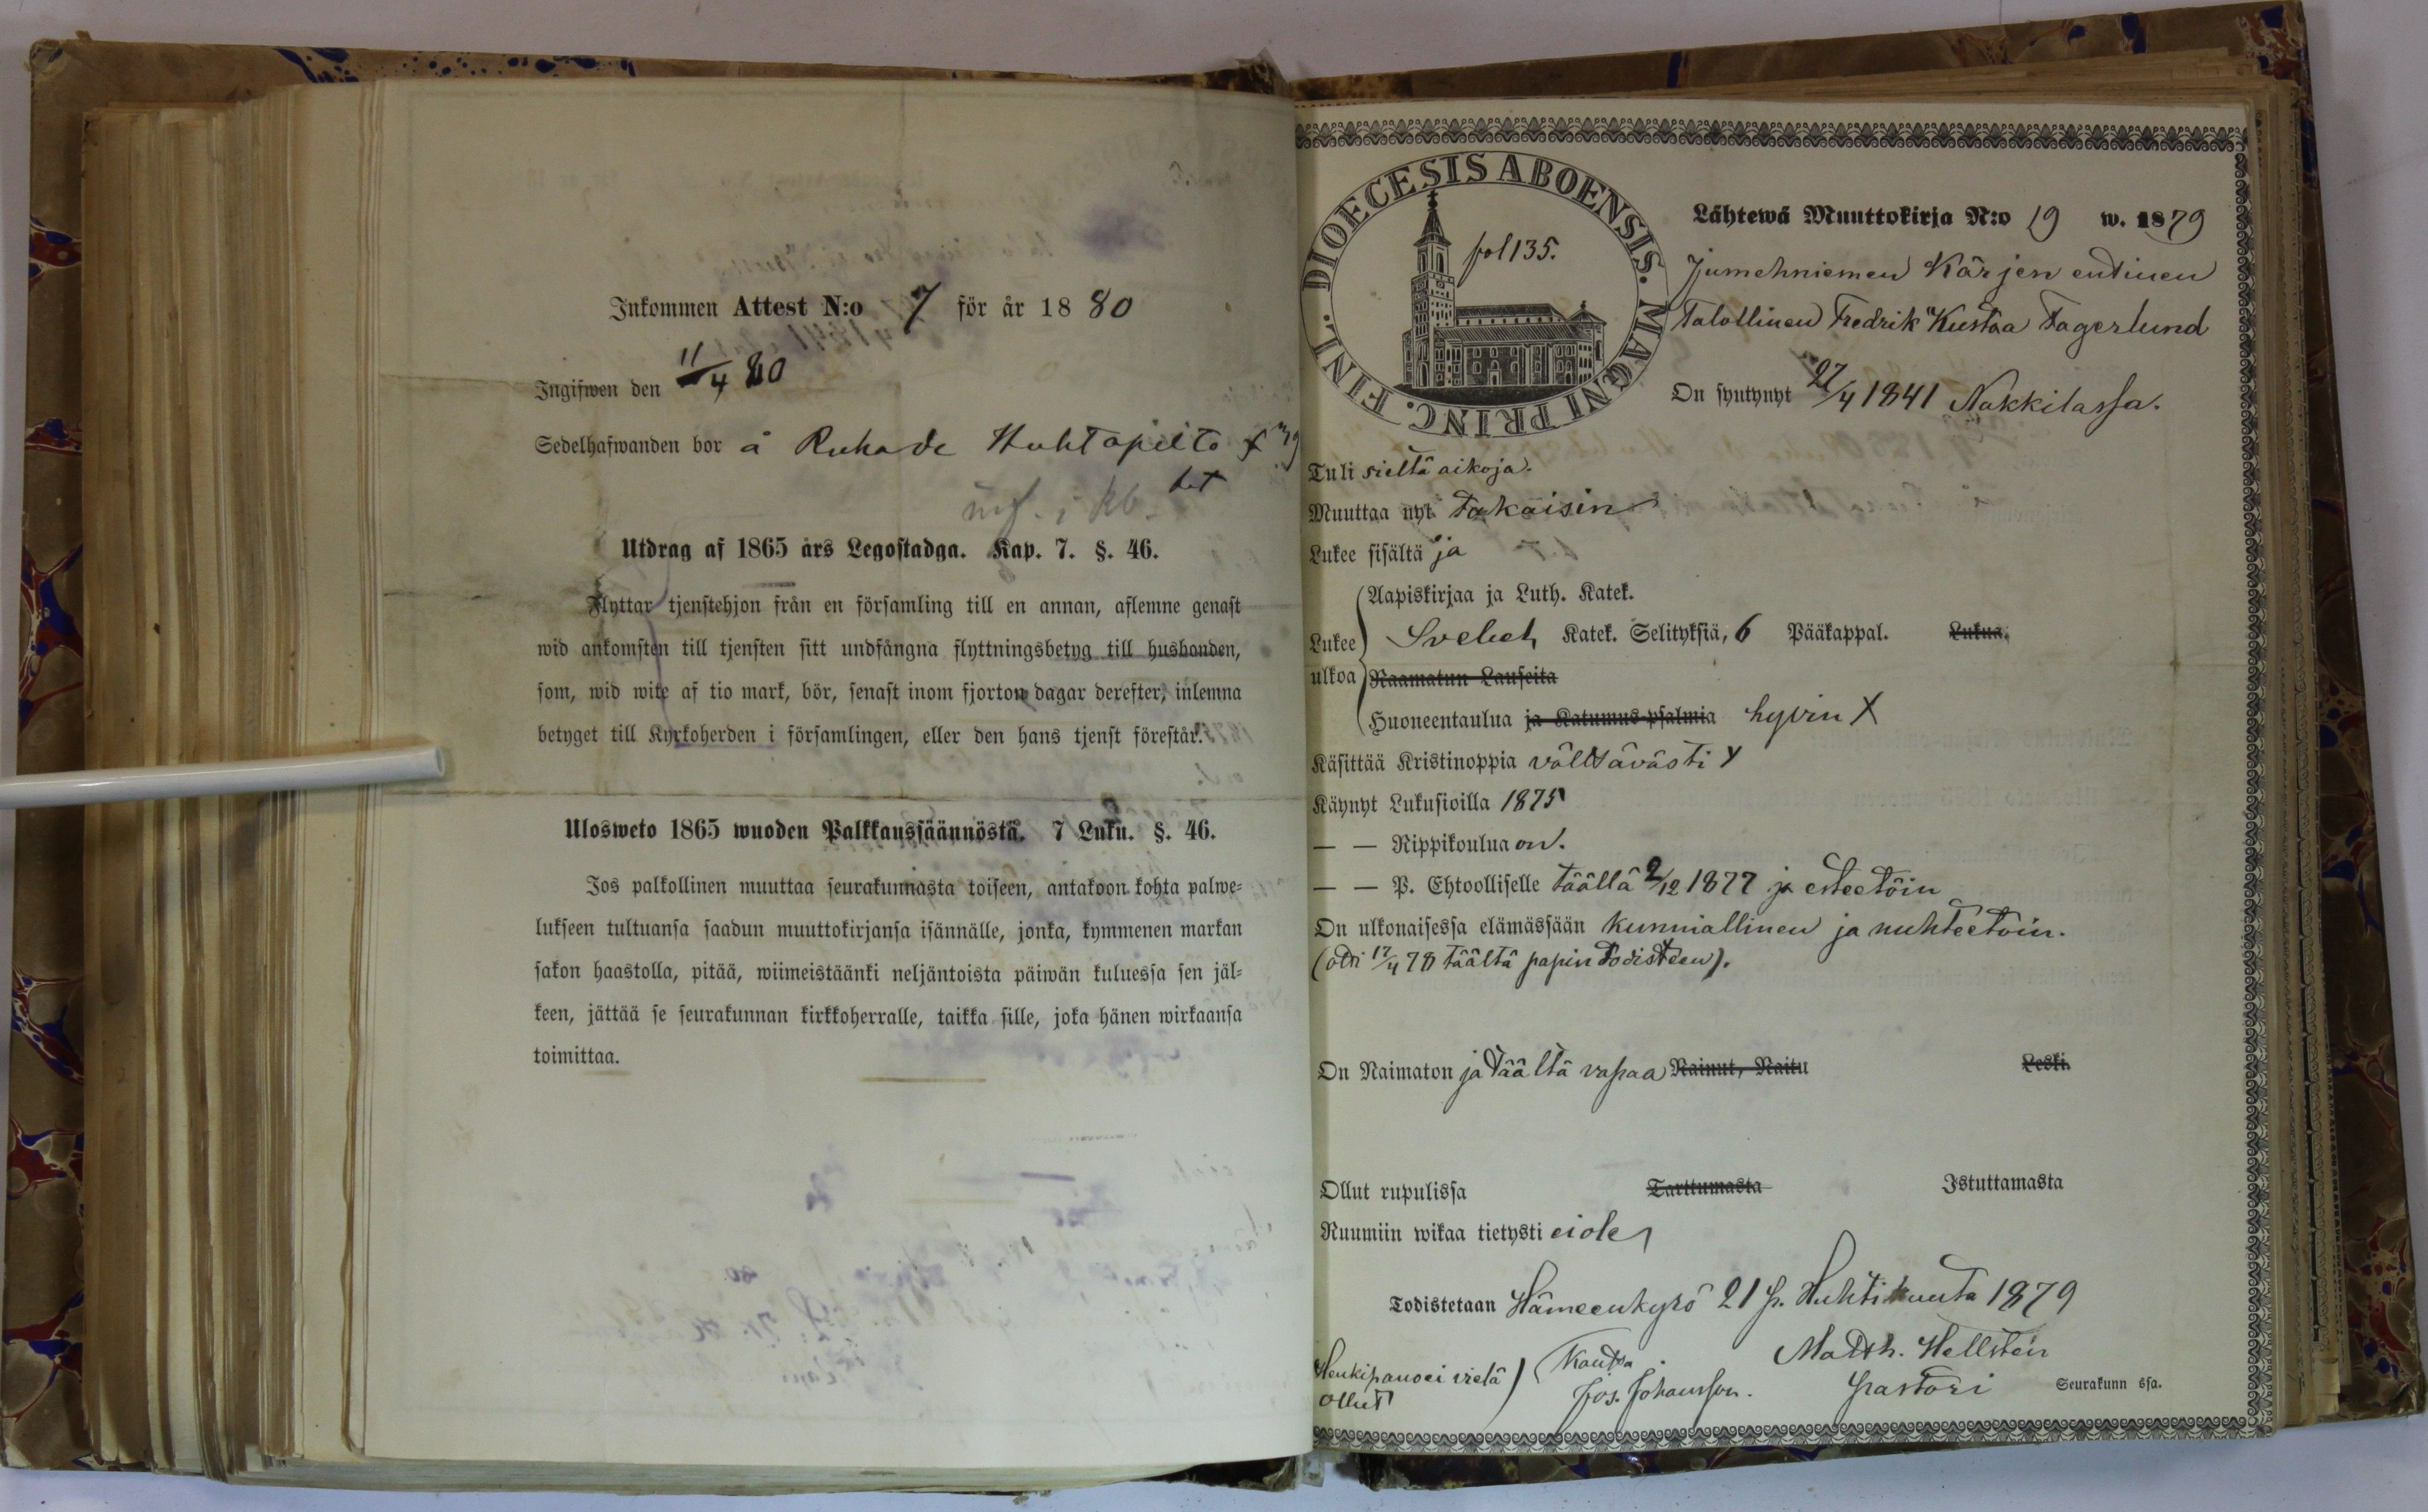 Inkommen Attest N:o 7 för år 1880
Ingifwen den 11/4 80
Sedelhafwanden bor å Ruhade Huhtapelto
Utdrag af 1865 års Legostadga. Kap. 7. §. 46.
Flyttar tjenstehjon från en församling till en annan, aflemne genast
wid ankomsten till tjensten sitt undfångna flyttningsbetyg till husbonden,
som, wid wite af tio mark, bör, senast inom fjorton dagar derefter, inlemna
betyget till Kyrkoherden i församlingen, eller den hans tjenst förestår.
Ulosweto 1865 wuoden Palkkaussäännöstä. 7 Luku. §. 46.
Jos palkollinen muuttaa seurakunnasta toiseen, antakoon kohta palwe=
lukseen tultuansa saadun muuttokirjansa isännälle, jonka, kymmenen markan
sakon haastolla, pitää, wiimeistäänki neljäntoista päiwän kuluessa sen jäl=
keen, jättää se seurakunnan kirkkoherralle, taikka sille, joka hänen wirkaansa
toimittaa.
DIOECESIS ABOENSIS. MAGNI PRINC. FINL.
fol 135.
Lähtewä Muuttokirja N:o 19 w. 1879
Jumehniemen Kärjen entinen
Talollinen Fredrik Kustaa Fagerlund
On syntynyt 27/4 1841 Nakkilassa.
Tuli sieltä aikoja.
Muuttaa nyt Takaisin
Lukee sisältä ja
Lukee ulkoa
Aapiskirjaa ja Luth. Katek.
Svebel. Katek. Selityksiä, 6 Pääkappal. Lukua.
Raamatun Lauseita
Huoneentaulua ja Katumus-psalmia hyvin
Käsittää Kristinoppia välttävästi
Käynyt Lukusioilla 1875
— — Rippikoulua on.
— — P. Ehtoolliselle täällä 2/12 1877 ja esteetöin
On ulkonaisessa elämässään kunniallinen ja nuhteetoin.
(otti 17/4 78 täältä papin todisteen).
On Naimaton ja täältä vapaa Nainut, Naitu Leski.
Ollut rupulissa Tarttumasta Istuttamasta
Ruumiin wikaa tietysti eiole
Todistetaan Hämeenkyrö 21 p. Huhtikuuta 1879
Matth. Hellstén
pastori Seurakunn ssa.
Henkipanoei vielä
ollut
Kautta
Jos. Johansson.